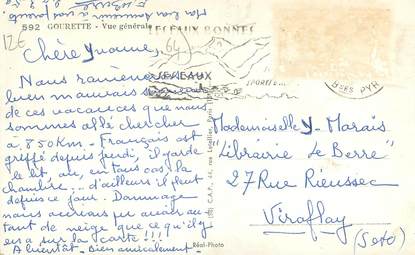 592 GOURETTE - Vue générale
12E
64
LES EAUX BONNES
Chère Yvonne,
Nous ramènerons
bien mauvais souvenir
de ces vacances que nous
sommes allé chercher
à 850 Km - Français est
grippé depuis jeudi, il garde
le lit, ou, en tous cas la
chambre... d'ailleurs il pleut
depuis ce jour. Dommage
nous aurions pu avoir au
tant de neige que ce qu'il y
en a sur la carte !!!
A bientôt - Bien amicalement -
BSES PYR
Mademoiselle Y. Marais
"Librairie Le Berre"
27 Rue Rieussec
Viroflay
(S et O)
Réal-Photo